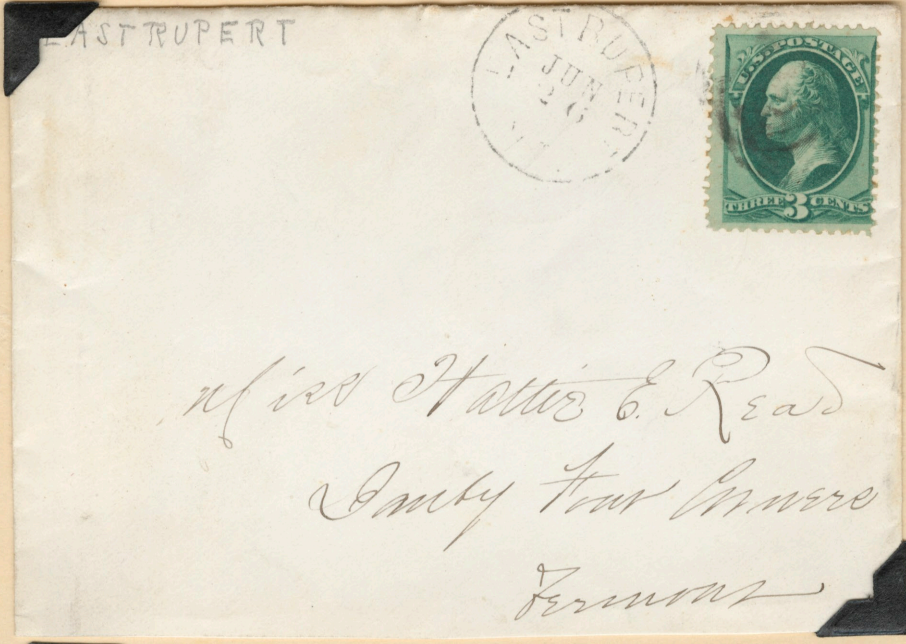 EAST RUPERT
EAST RUPERT
JUN
26
VT.
U.S. POSTAGE
THREE 3 CENTS
Miss Hattie E. Read
Danby Four Corners
Vermont